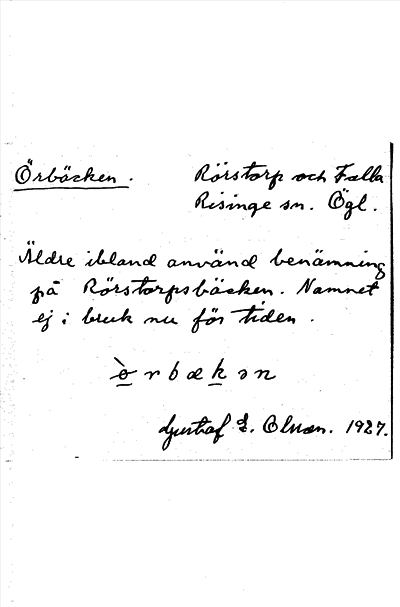 Örbäcken. Rörstorp och Falla
Risinge sn. Ögl.
Äldre ibland använd benämning
på Rörstorpsbäcken. Namnet
ej i bruk nu för tiden.
Gustaf E. 1927.